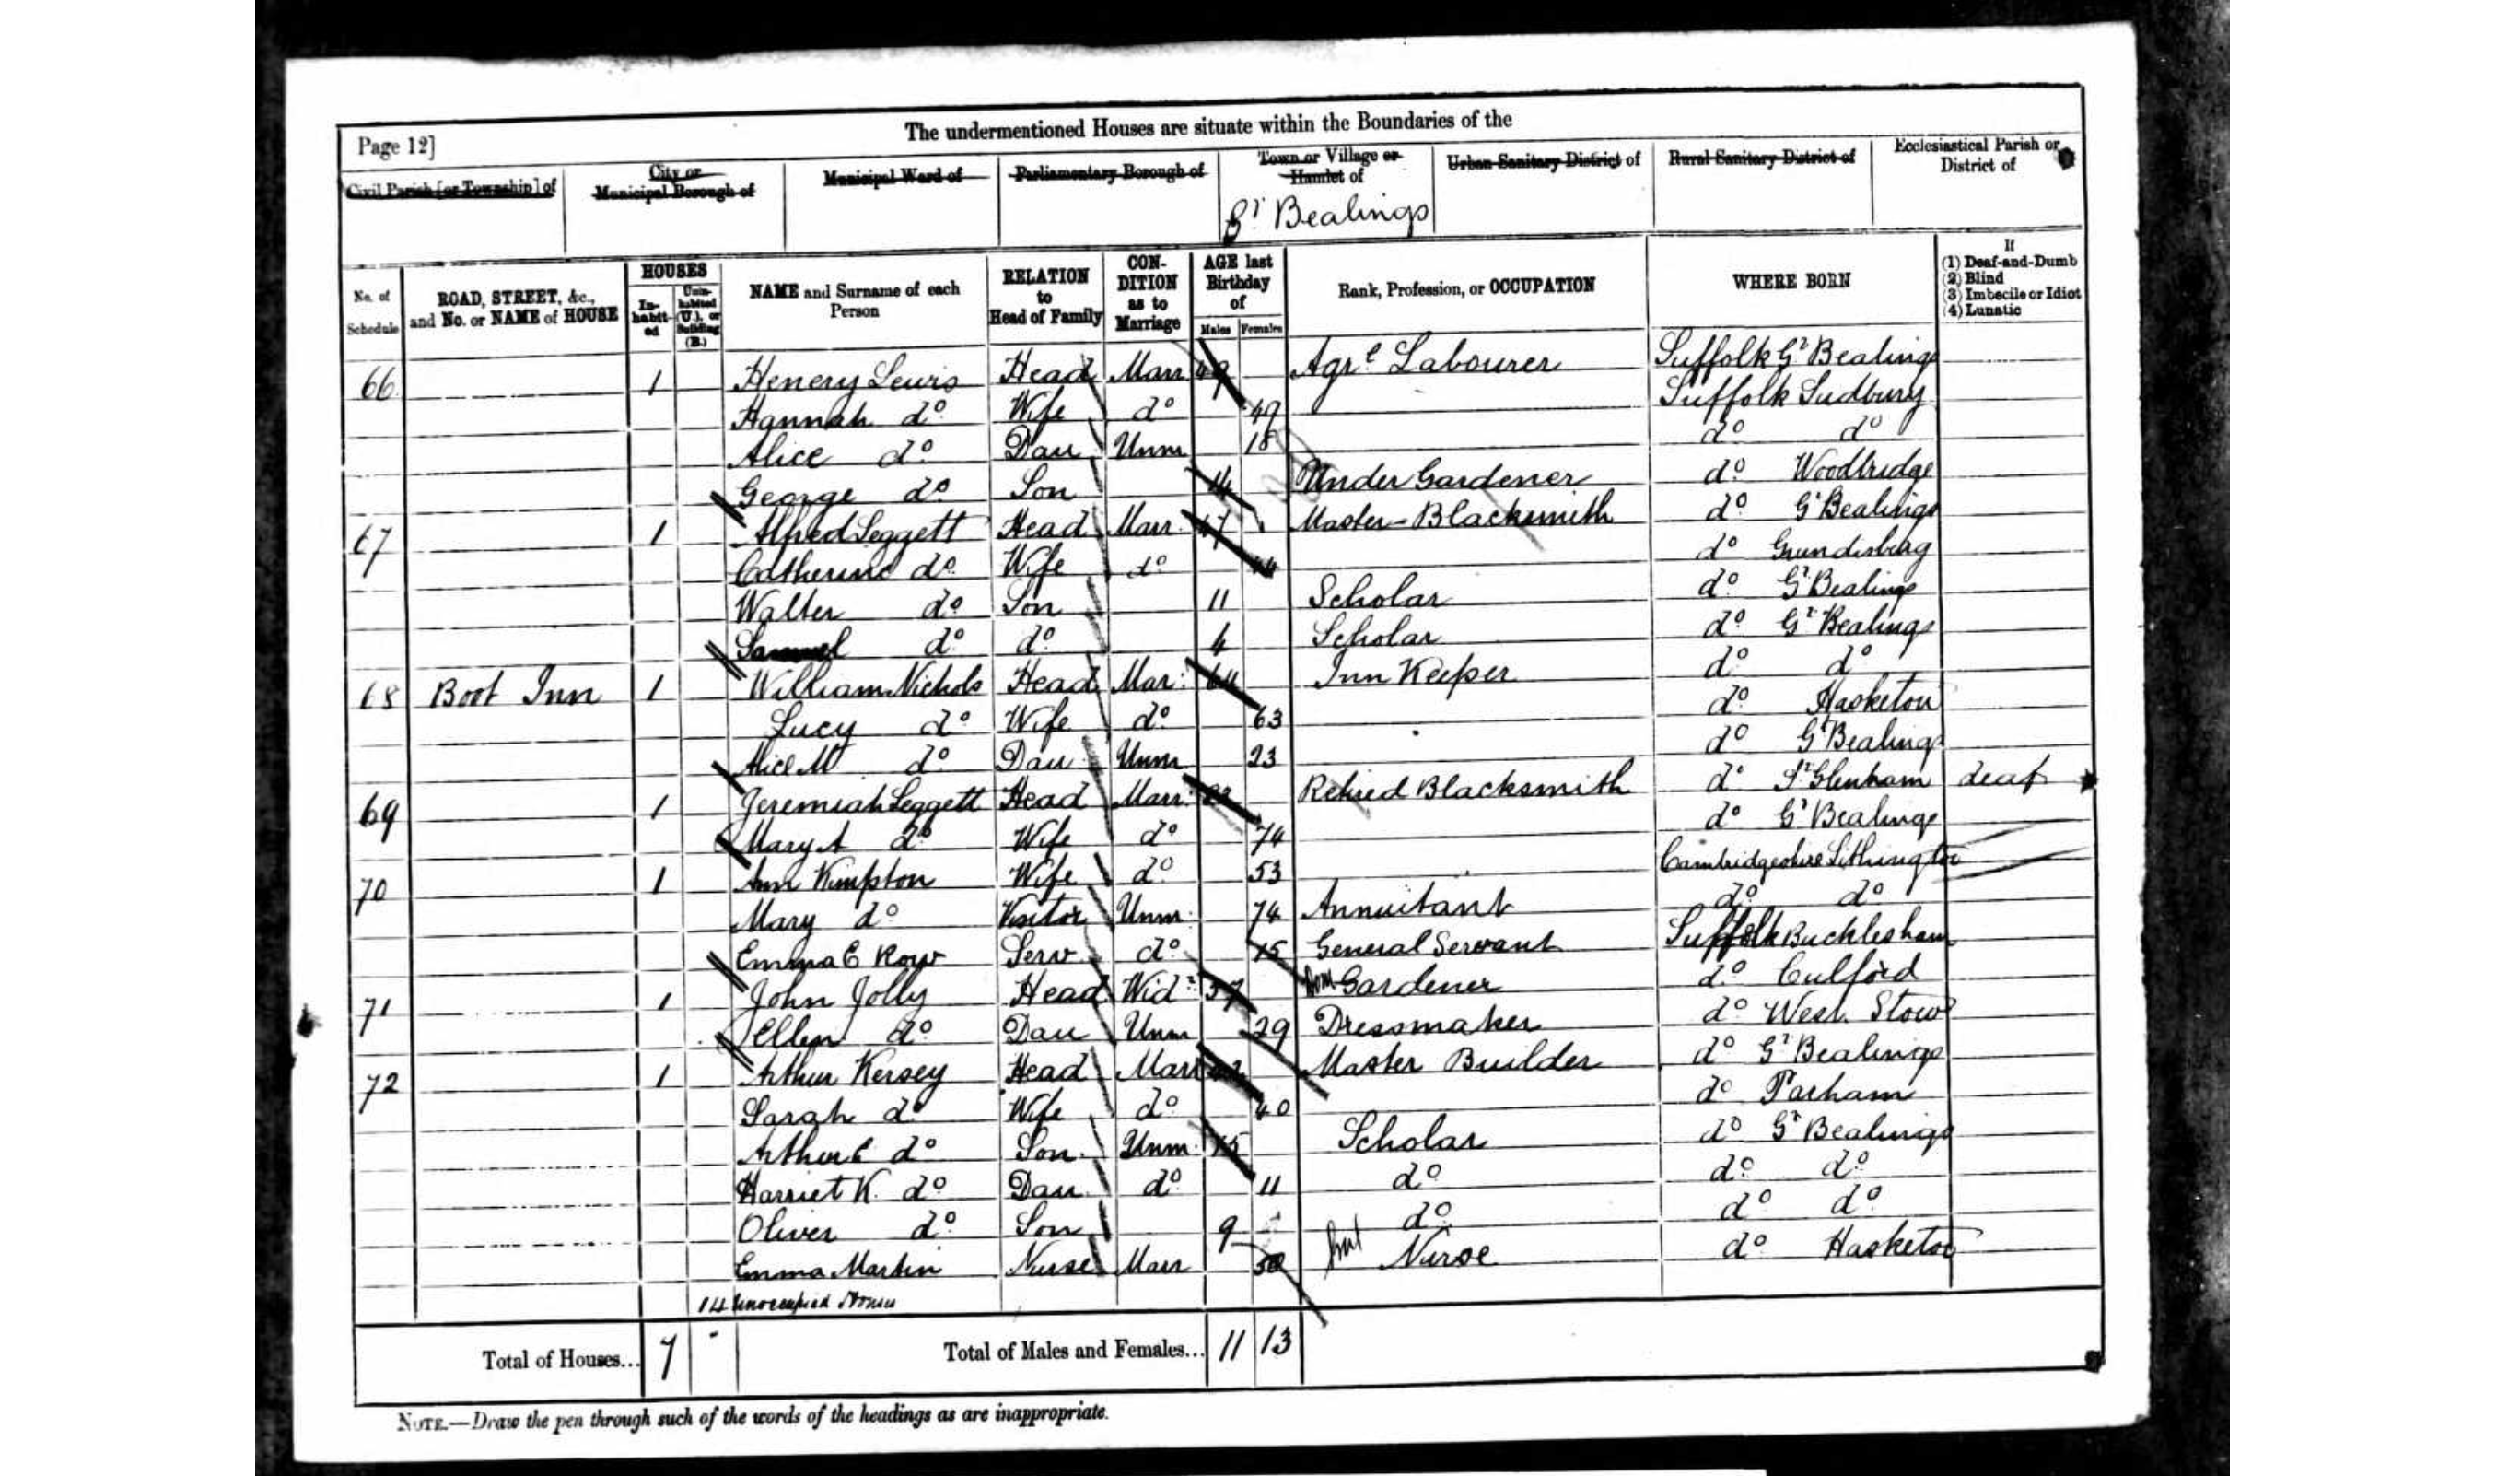 The undermentioned Houses are situate within the Boundaries of the
Page 12]
Civil Parish [or Township] of
City or
Municipal Borough of
Municipal Ward of
Parliamentary Borough of
Town or Village or
Hamlet of
Gt Bealings
Urban Sanitary District of
Rural Sanitary District of
Ecclesiastical Parish or
District of
No. of
Schedule
ROAD, STREET, &c.,
and No. or NAME of HOUSE
HOUSES
In-
habit-
ed
Unin-
habited
(U.), or
Building
(B.)
NAME and Surname of each
Person
RELATION
to
Head of Family
CON-
DITION
as to
Marriage
AGE last
Birthday
of
Males Females
Rank, Profession, or OCCUPATION
WHERE BORN
If
(1) Deaf-and-Dumb
(2) Blind
(3) Imbecile or Idiot
(4) Lunatic
66 1 Henery Lewis Head Marr 49 Agrl Labourer Suffolk Gt Bealings
Hannah do Wife do 49 Suffolk Sudbury
Alice do Dau Unm 18 do do
George do Son 14 Under Gardener do Woodbridge
67 1 Alfred Leggett Head Marr 47 Master-Blacksmith do Gt Bealings
Catherine do Wife do 44 do Grundisburg
Walter do Son 11 Scholar do Gt Bealings
Samuel do do Scholar do Gt Bealings
68 Boot Inn 1 William Nichols Head Mar 64 Inn Keeper do do
Lucy do Wife do 63 do Hasketon
Alice M do Dau Unm 23 do Gt Bealings
69 1 Jeremiah Leggett Head Marr Retired Blacksmith do Glenham deaf
Mary A do Wife do 74 do Gt Bealings
70 1 Ann Kimpton Wife do 53 Cambridgeshire Lithington
Mary do Visitor Unm 74 Annuitant do do
Emma E Row Serv do 15 General Servant Suffolk Bucklesham
71 1 John Jolly Head Widr 57 Dom Gardener do Culford
Ellen do Dau Unm 29 Dressmaker do West Stow
72 1 Arthur Kersey Head Marr Master Builder do Gt Bealings
Sarah do Wife do 40 do Parham
Arthur C do Son Unm 15 Scholar do Gt Bealings
Harriet K. do Dau do 11 do do do
Oliver do Son 9 do do do
Emma Martin Nurse Marr 50 Nurse do Hasketon
14 Unoccupied Houses
Total of Houses... 7
Total of Males and Females... 11 13
NOTE.—Draw the pen through such of the words of the headings as are inappropriate.